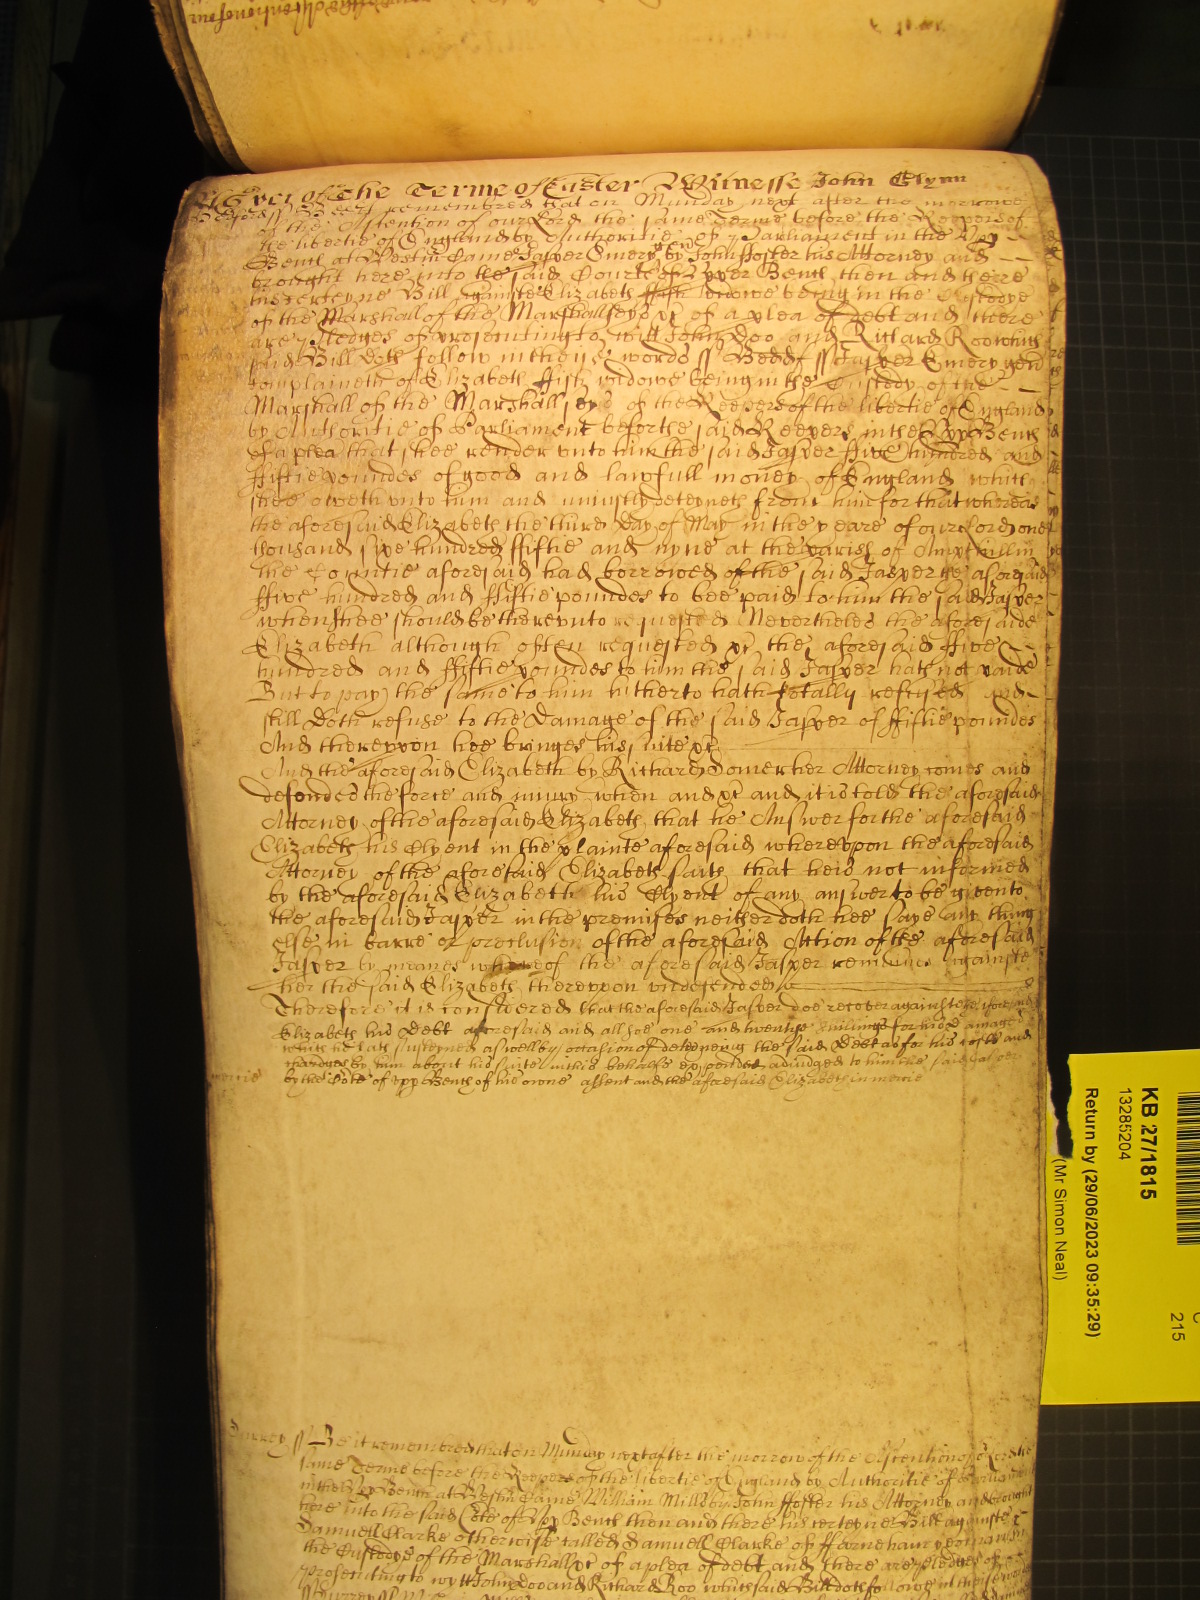 of the Terme of Easter Witnesse John Glynn
Bedford ss Bee it remembred that on Munday next after the morrowe
of the Ascention of our Lord the same Terme before the Keepers of
the libertie of England by Authoritie of Parliament in the Upp
Bench at Westm Came Jasper Emery gen by John Foster his Attorney and
brought here into the said Courte of Upper Bench then and there
his certeyne Bill againste Elizabeth ffish widowe being in the Custodye
of the Marshall of the Marshallsey &c of a plea of debt and there
are pledges of prosecuting to witt John Doo and Richard Roo which
said Bill doth follow in theise words ss Bedf ss Jasper Emery gen
complaineth of Elizabeth ffish widowe being in the Custody of the
Marshall of the Marshallsey of the Keepers of the libertie of England
by Authoritie of Parliament before the said Keepers in the Upp Bench
of a plea that shee render unto him the said Jasper ffive hundred and
ffiftie poundes of good and lawfull money of England which
shee oweth unto him and uniustly deteyneth from him for that whereas
the aforesaid Elizabeth the third day of May in the yeare of our Lord one
thousand sixe hundred ffiftie and nyne at the parish of Ampthill in
the Countie aforesaid had borrowed of the said Jasper the aforesaid
ffive hundred and ffiftie poundes to bee paid to him the said Jasper
when shee should be thereunto requested Neverthelesse the aforesaide
Elizabeth although often requested &c the aforesaid ffive
hundred and ffiftie poundes to him the said Jasper hath not paide
But to pay the same to him hitherto hath totally refused and
still doth refuse to the Damage of the said Jasper of ffiftie poundes
And thereupon hee bringes his suite &c
And the aforesaid Elizabeth by Richard Somer her Attorney comes and
defended the force and iniury when and &c and it is told the aforesaid
Attorney of the aforesaid Elizabeth that he Answer for the aforesaid
Elizabeth his Clyent in the plainte aforesaid whereupon the aforesaid
Attorney of the aforesaid Elizabeth saith that he is not informed
by the aforesaid Elizabeth his Clyent of any answer to be given to
the aforesaid Jasper in the premises neither doth hee saye any thing
else in barre or preclusion of the aforesaid Action of the aforesaid
Jasper by meanes whereof the aforesaid Jasper remaines againste
her the said Elizabeth thereupon undefended
Therefore it is considered that the aforesaid Jasper doe recover against the aforesaid
Elizabeth his Debt aforesaid and alsoe one and twentye shillings for his damages
which he hath susteyned aswell by occasion of deteyneing the said Debt as for his costs and
chardges by him about his suite in this behalfe expended adiudged to him the said Jasper
mercie by the Cote of Upp Bench of his owne assent and the aforesaid Elizabeth in mercie
Surrey ss Be it remembred that on Munday next after the morrow of the Ascention of our Lord the
same Terme before the Keepers of the libertie of England by Authoritie of Parliament
in the Upp Bench at Westm Came William Mills by John ffoster his Attorney and brought
here into the said Cote of Upp Bench then and there his certeyne Bill against
Samuell Clarke otherwise called Samuell Clarke of ffarneham yeoman in
the Custodye of the Marshall &c of a plea of debt and there are pledges of
prosecuting to witt John doo and Richard Roo which said Bill doth followe in theise words
KB 27/1815
13285204
Return by (29/06/2023 09:35:29)
(Mr Simon Neal)
215